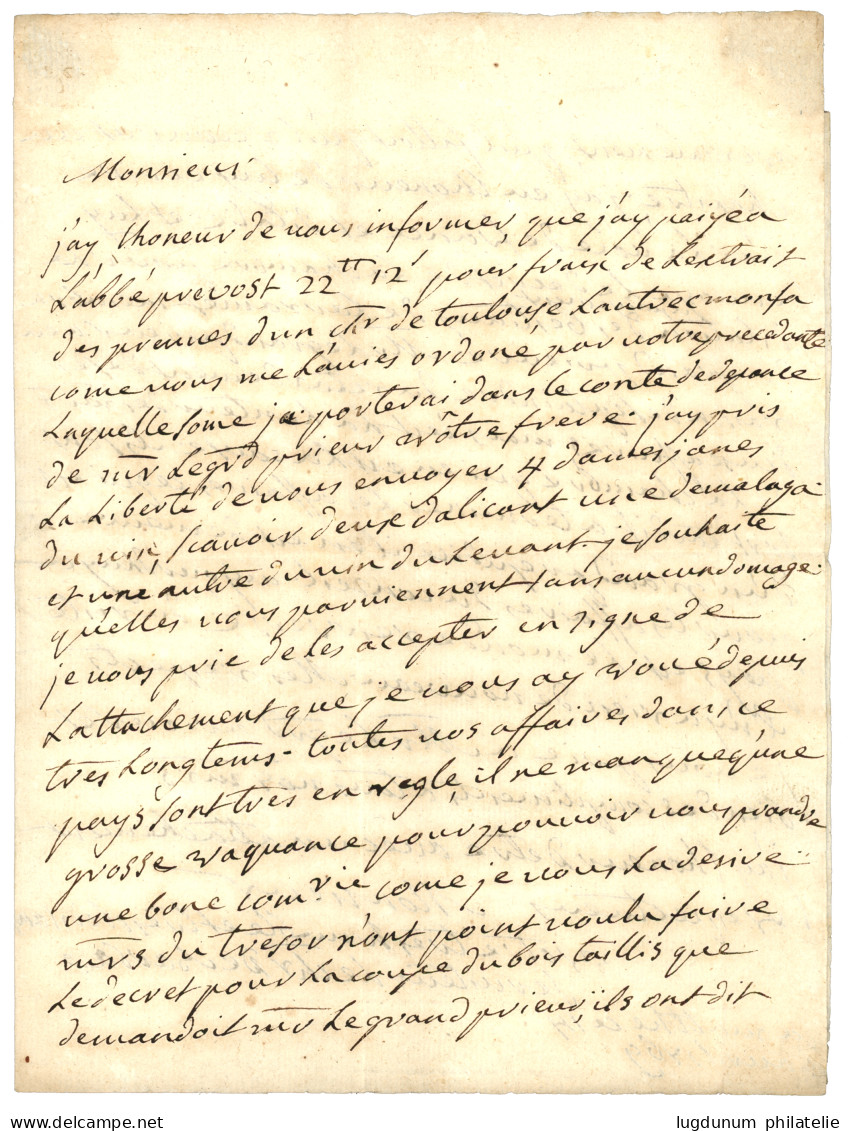 Monsieur
j'ay lhoneur de vous informer, que j'ay paiyéa
L'abbé prevost 22tt 12s pour fraix de Lextrait
des preuves dun chr de toulouse Lautrecmonfa
come vous me L'avies ordoné par votre precedante
Laquelle some je porterai dans le conte de depance
de mr Legrd prieur vôtre frere. j'ay pris
La Liberté de vous envoyer 4 dames janes
du vin, scavoir deux dalicant une demalaga
et une autre du vin du Levant. je souhaite
qu'elles vous parviennent sans aucun domage.
je vous prie de les accepter en signe de
Lattachement que je vous ay voué depuis
tres Longtems - toutes vos affaires dans ce
pays sont tres en regle, il ne manque qu'une
grosse vaquance pour pouvoir vous prandre
une bone comrie come je vous La desire
mrs du tresor n'ont point voulu faire
Le decret pour La coupe du bois taillis que
demandoit mr Le grand prieur, ils ont dit
delcampe.net
lugdunum philatelie